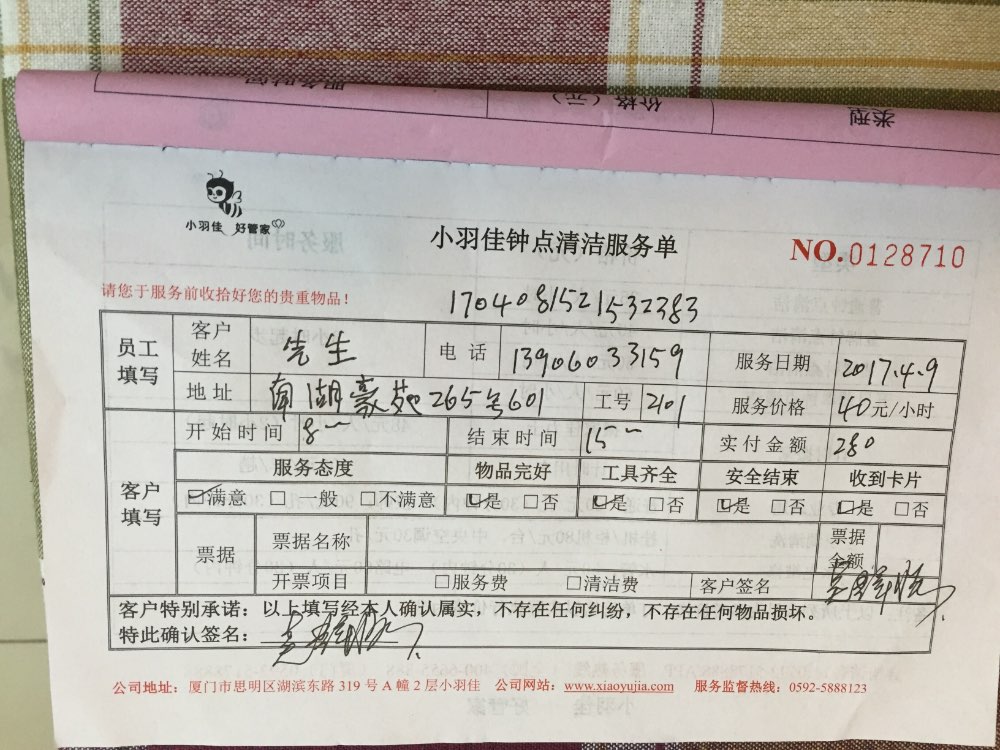 类型
价格（元）
服务时间
小羽佳 好管家
小羽佳钟点清洁服务单
NO.0128710
请您于服务前收拾好您的贵重物品！
170408152153​2383
员工填写
客户姓名 先生 电话 13906033159 服务日期 2017.4.9
地址 湖豪苑265号601 工号 2101 服务价格 40元/小时
开始时间 8 结束时间 15 实付金额 280
客户填写
服务态度 物品完好 工具齐全 安全结束 收到卡片
满意 一般 不满意 是 否 是 否 是 否 是 否
票据 票据名称 票据金额
开票项目 服务费 清洁费 客户签名
客户特别承诺：以上填写经本人确认属实，不存在任何纠纷，不存在任何物品损坏。
特此确认签名：
公司地址：厦门市思明区湖滨东路 319 号 A 幢 2 层小羽佳 公司网站：www.xiaoyujia.com 服务监督热线：0592-5888123